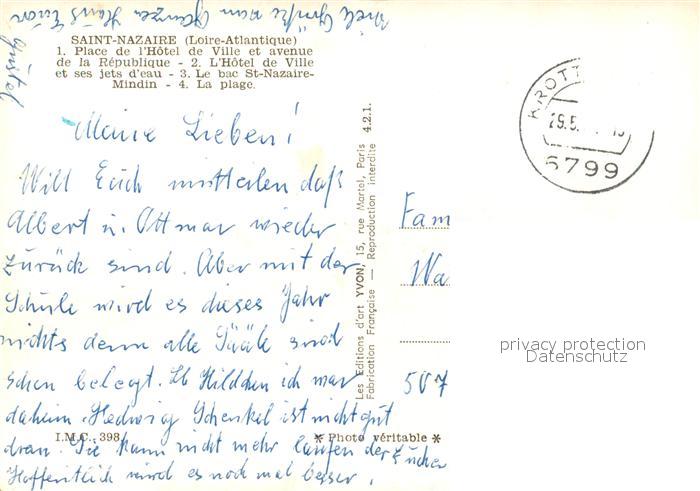 Viele Grüße vom ganzen Haus Euere
Christel
SAINT-NAZAIRE (Loire-Atlantique)
1. Place de l'Hôtel de Ville et avenue
de la République - 2. L'Hôtel de Ville
et ses jets d'eau - 3. Le bac St-Nazaire-
Mindin - 4. La plage.
Meine Lieben!
Will Euch mitteilen daß
Albert u. Ottmar wieder
zurück sind. Aber mit der
Schule wird es dieses Jahr
nichts denn alle Sääle sind
schon belegt. Lb Hildchen ich war
daheim. Hedwig Schenkel ist nicht gut
dran. Sie kann nicht mehr laufen der Zucker
Hoffentlich wird es noch mal besser.
I.M.C. 398
* Photo véritable *
Les Editions d'art YVON, 15, rue Martel, Paris 4.2.1.
Fabrication Française — Reproduction interdite
KROTT
29.5.
6799
Fam
Wa
507
privacy protection
Datenschutz